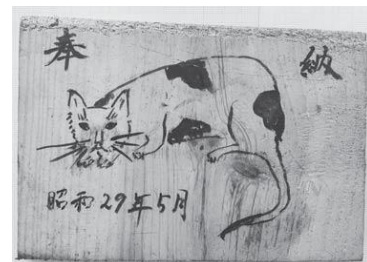 奉納
昭和29年5月